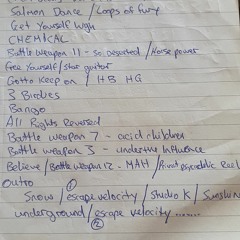 Salmon Dance / Loops of Fury
Get Yourself High
CHEMICAL
Battle Weapon 11 - so deserted / Noise power
Free Yourself / Star guitar
Gotta Keep On / HB HG
3 Birdies
Bango
All Rights Reversed
Battle weapon 7 - acid children
Battle weapon 3 - under the Influence
Believe / Battle weapon 12 - MAH / Privat Psychedelic Reel
Outro
①
Snow / escape velocity / Studio K / Sunshin
underground / escape velocity .......
②